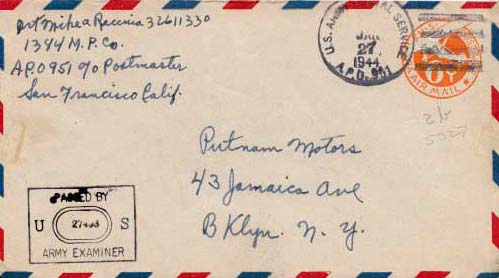 Pvt Mike A Racunia 32611330
1384 M.P. Co.
A.P.O 951 c/o Postmaster
San Francisco Calif.
U.S. ARMY POSTAL SERVICE
JAN
27
1944
A.P.O. 951
6
AIR MAIL
2/5
Putnam Motors
43 Jamaica Ave
BKlyn. N. Y.
PASSED BY
U S
ARMY EXAMINER